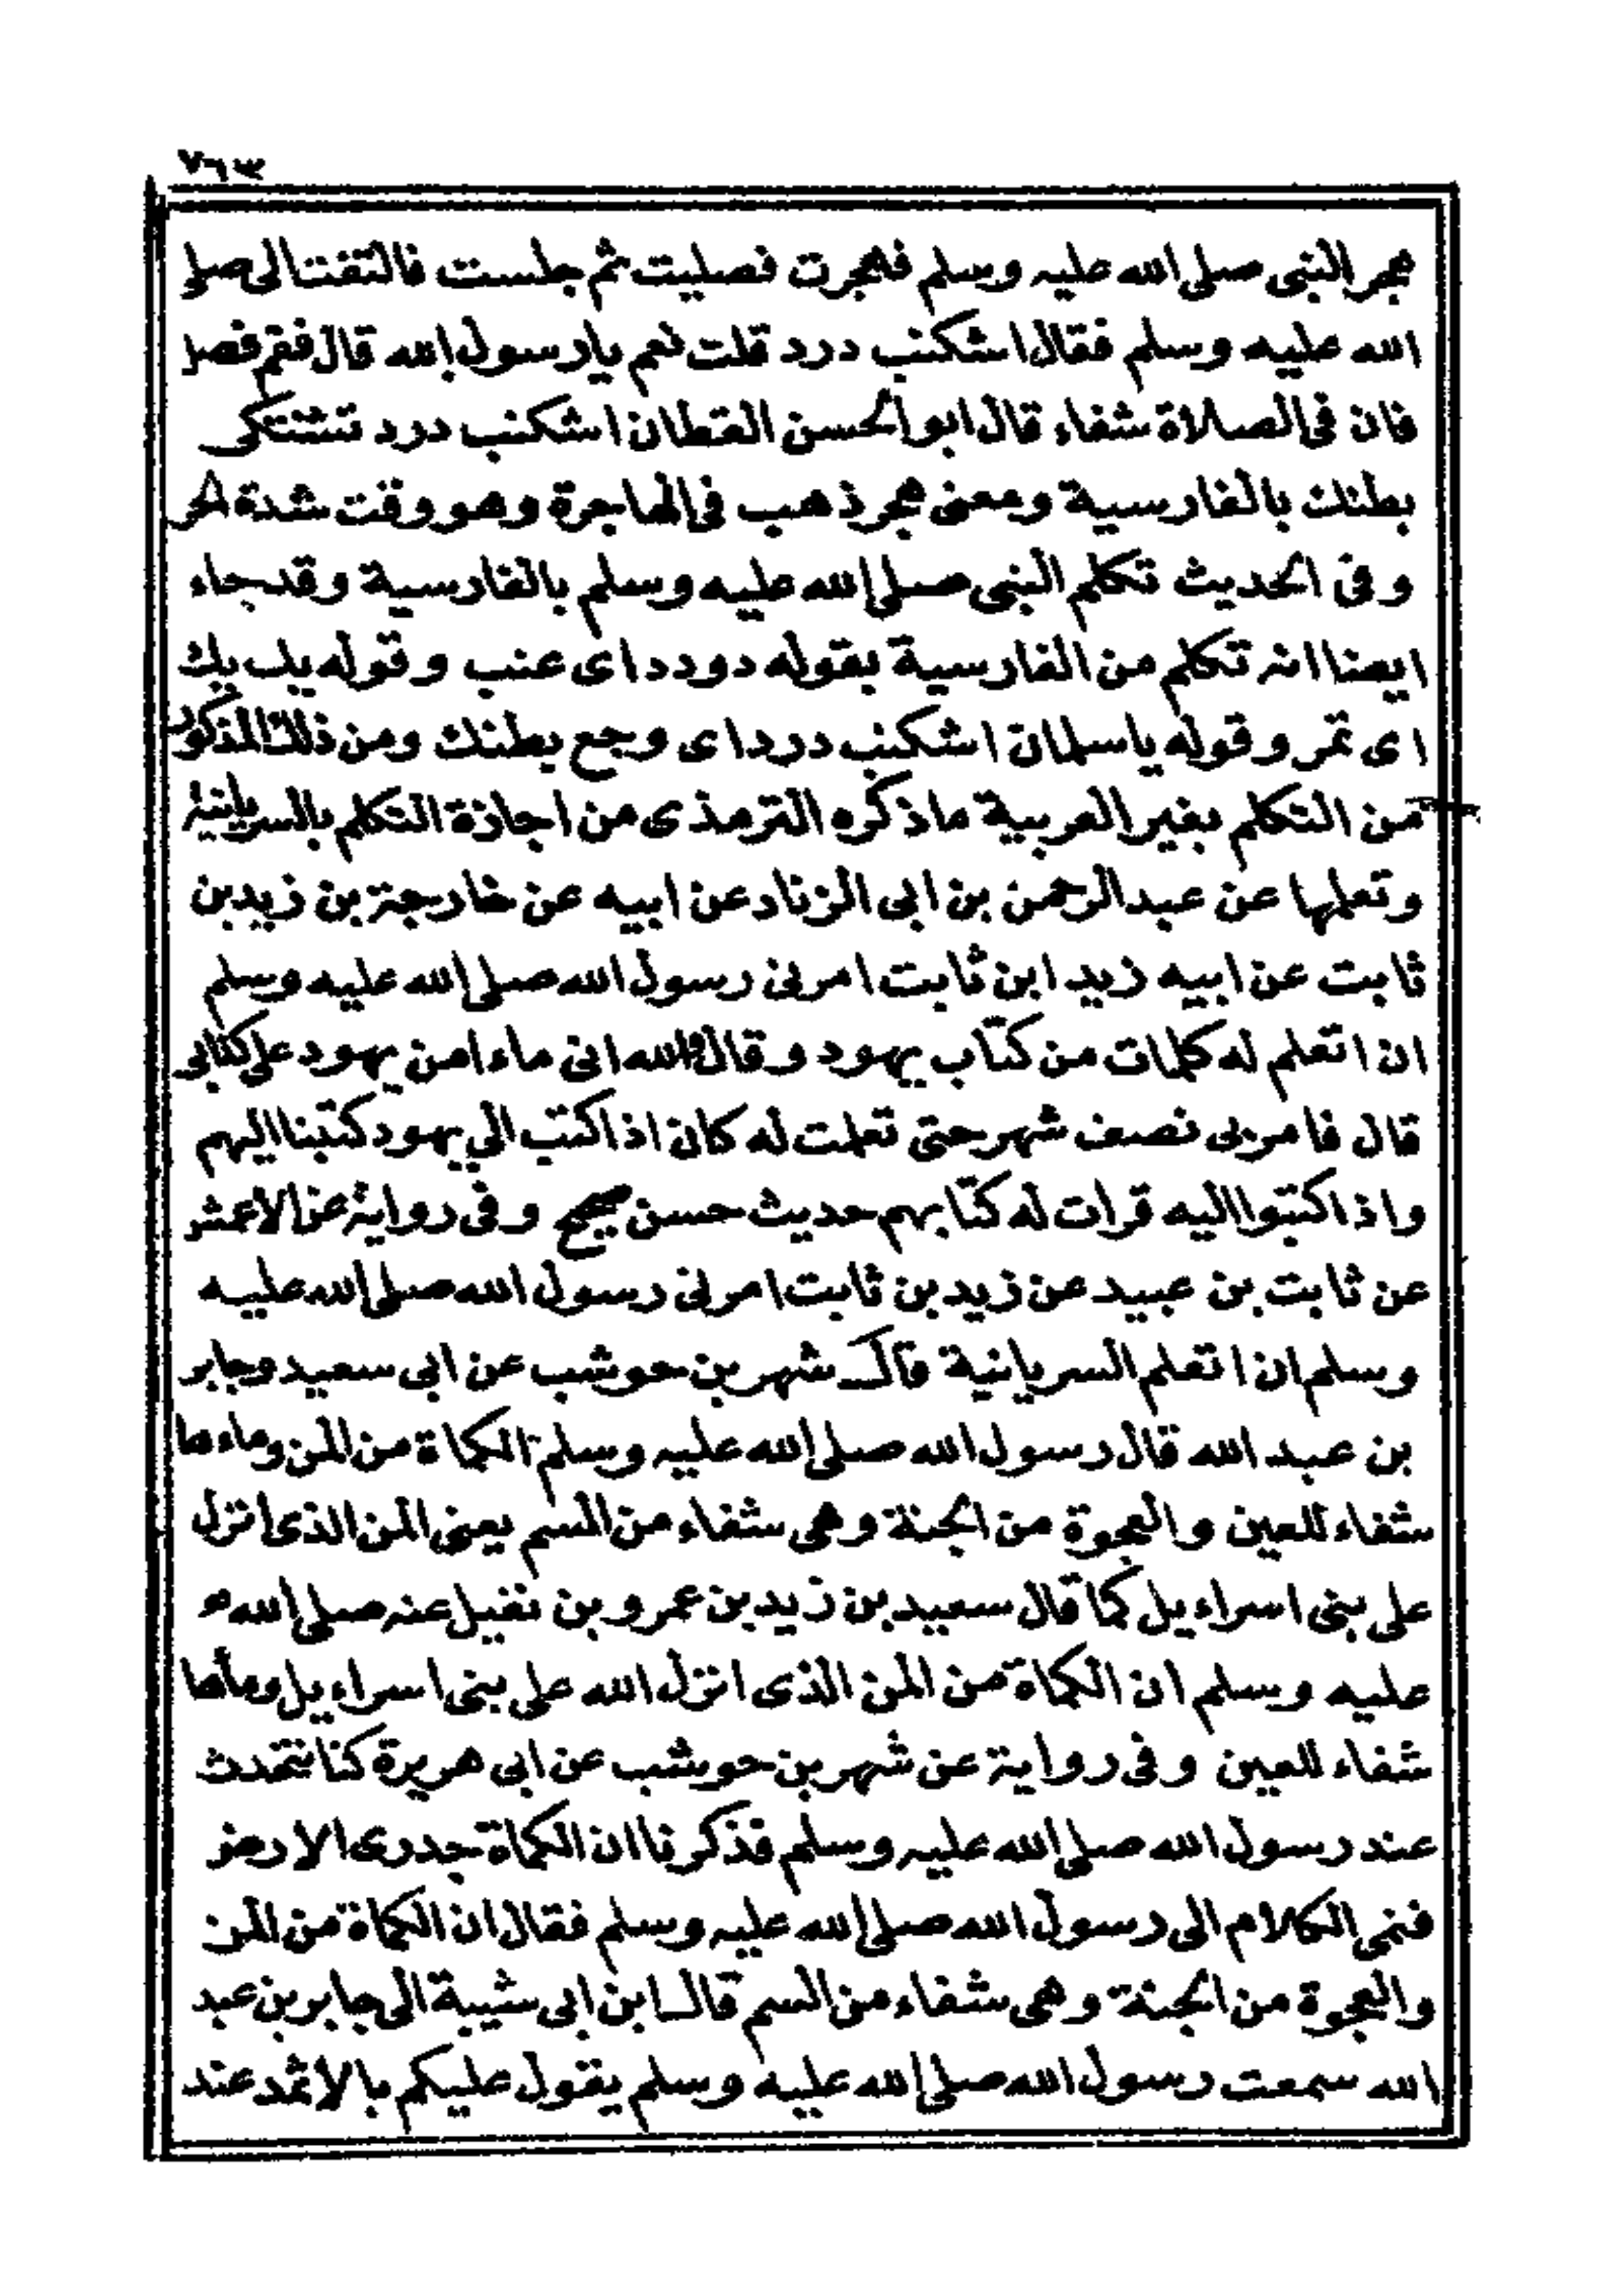 ٧٦٣
هجر النبى صلى الله عليه وسلم فهجرت فصليت ثم جلست فالتفت الى صلى
الله عليه وسلم فقال اشكنب درد قلت نعم يا رسول الله قال فقم فصل
فان فى الصلاة شفاء قال ابو الحسن القطان اشكنب درد تشتكى
بطنك بالفارسية ومعنى هجر ذهب فى الهاجرة وهو وقت شدة الحر
وفى الحديث تكلم النبى صلى الله عليه وسلم بالفارسية وقد جاء
ايضا انه تكلم من الفارسية بقوله دو دد اى عنب وقوله يك يك
اى تمر وقوله يا سلمان اشكنب درد اى وجع بطنك ومن ذلك المذكور
من التكلم بغير العربية ما ذكره الترمذى من اجازة التكلم بالسريانية
وتعلمها عن عبد الرحمن بن ابى الزناد عن ابيه عن خارجة بن زيد بن
ثابت عن ابيه زيد ابن ثابت امرنى رسول الله صلى الله عليه وسلم
ان اتعلم له كلمات من كتاب يهود وقال والله انى ما ءامن يهود على كتابى
قال فما مر بى نصف شهر حتى تعلمت له كان اذا كتب الي يهود كتبنا اليهم
واذا كتبوا اليه قرات له كتابهم حديث حسن صحيح وفى رواية عن الاعمش
عن ثابت بن عبيد عن زيد بن ثابت امرنى رسول الله صلى الله عليه
وسلم ان اتعلم السريانية قال شهر بن حوشب عن ابى سعيد وجابر
بن عبد الله قال رسول الله صلى الله عليه وسلم الكماة من المن وماءها
شفاء للعين والعجوة من الجنة وهى شفاء من السم يعنى المن الذى انزل
على بنى اسراءيل كما قال سعيد بن زيد بن عمرو بن نفيل عنه صلى الله
عليه وسلم ان الكماة من المن الذى انزل الله على بنى اسراءيل وماًها
شفاء للعين وفى رواية عن شهر بن حوشب عن ابى هريرة كنا نتحدث
عند رسول الله صلى الله عليه وسلم فذكرنا ان الكماة جدرى الارض
فنمى الكلام الى رسول الله صلى الله عليه وسلم فقال ان الكماة من المن
والعجوة من الجنة وهى شفاء من السم قال ابن ابى شيبة الى جابر بن عبد
الله سمعت رسول الله صلى الله عليه وسلم يقول عليكم بالاثمد عند